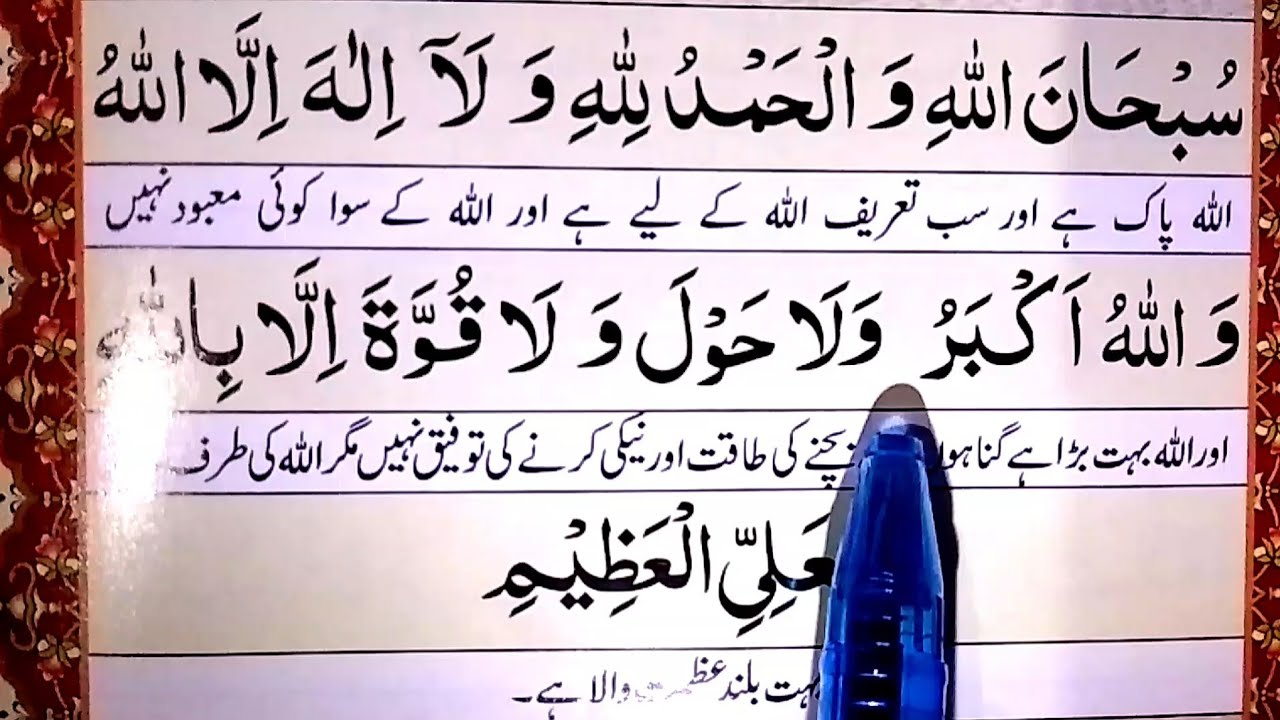 سُبْحَانَ اللّٰهِ وَ الْحَمْدُ لِلّٰهِ وَ لَآ اِلٰهَ اِلَّا اللّٰهُ
اللہ پاک ہے اور سب تعریف اللہ کے لیے ہے اور اللہ کے سوا کوئی معبود نہیں
وَ اللّٰهُ اَكْبَرُ وَلَا حَوْلَ وَ لَا قُوَّةَ اِلَّا بِاللّٰهِ
اور اللہ بہت بڑا ہے گناہوں بچنے کی طاقت اور نیکی کرنے کی توفیق نہیں مگر اللہ کی طرف
عَلِيِّ الْعَظِيْمِ
بہت بلند عظمت والا ہے۔